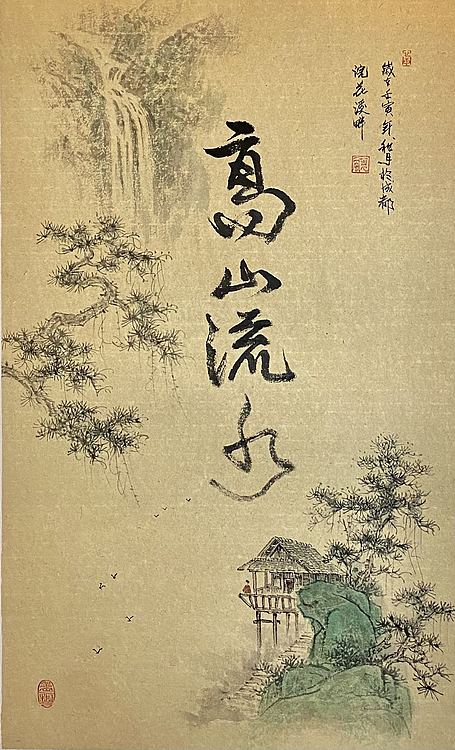 高山流水
歲在壬寅年秋月於成都
浣花溪畔